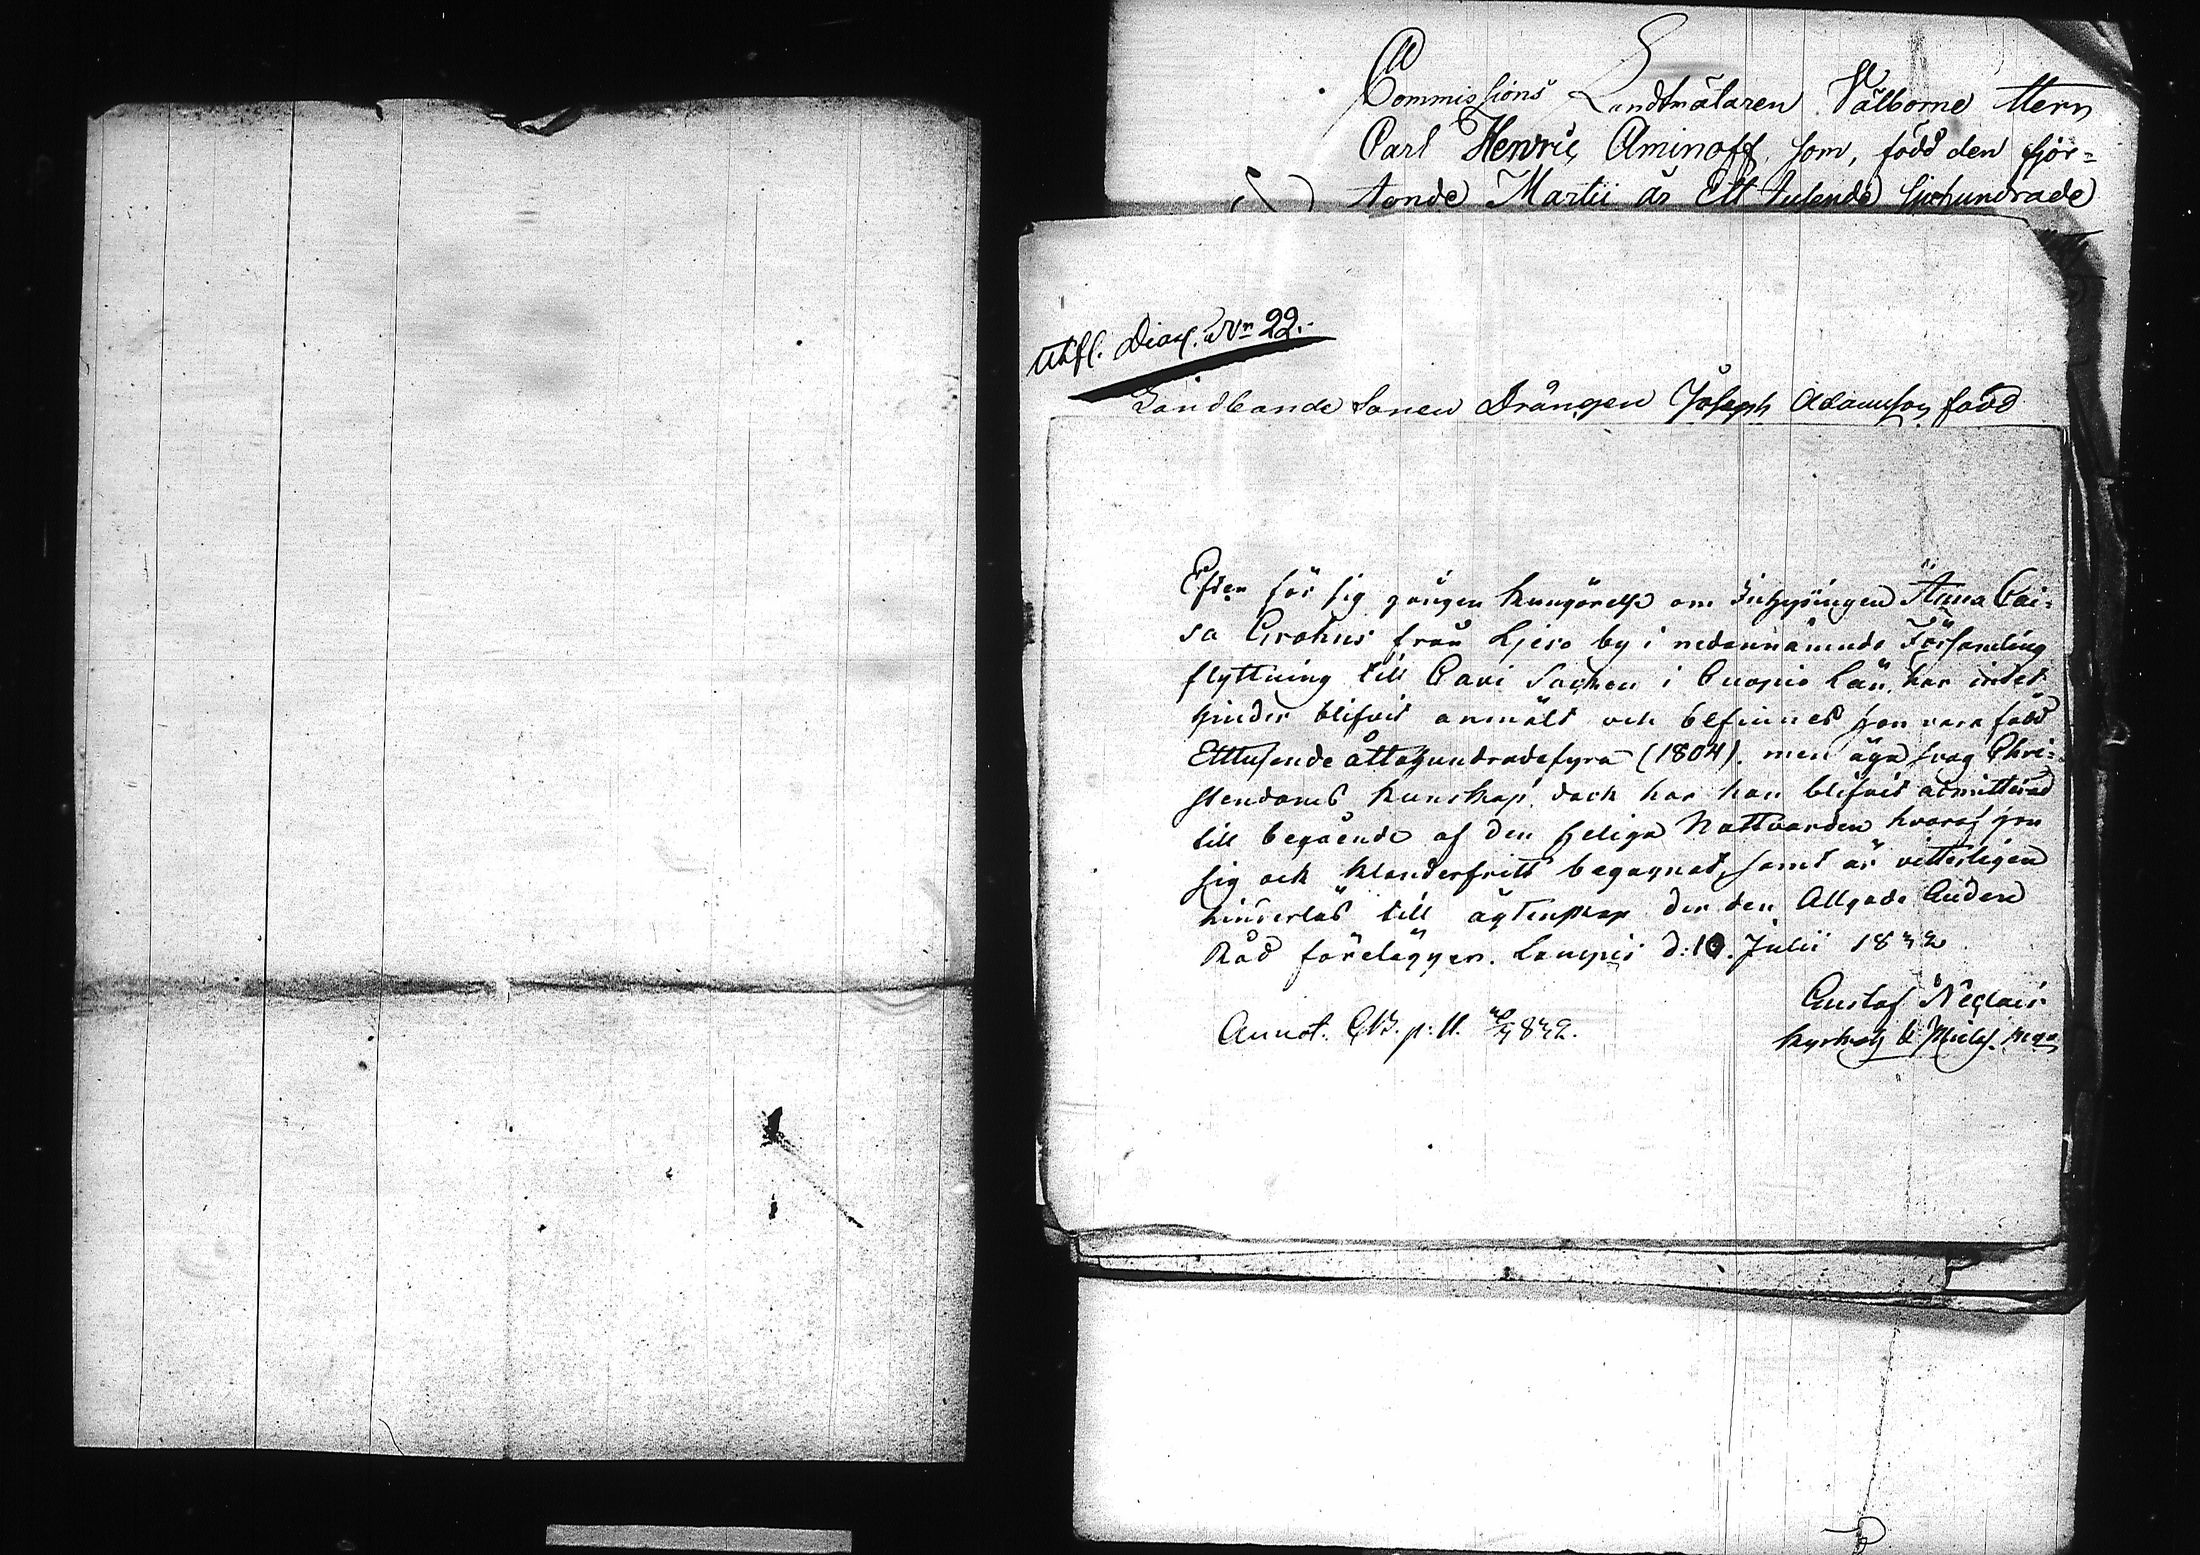 Commissions Landtmätaren Välborne Herr
Carl Henric Aminoff, som, född den fjor-
tonde Martii år Ett tusende sjuhundrade
Utfl. Diar. Nr 22.
Landbonde Sonen Drängen Joseph Adamsson född
Efter för sig gången kungörelse om Inhysingen Anna Cai-
sa Grahns från Ljeso by i nedannämnde Församling
flyttning till Cavi Socken i Cuopio Län, har intet
hinder blifvit anmält och befinnes hon vara född
Etttusende åttahundradefyra (1804). men äga svag Chri-
stendoms kunskap, dock har hon blifvit admitterad
till begående af den heliga Nattvarden hvaraf hon
sig ock klanderfritt begagnat, samt är vitterligen
hinderlös till ägtenskap der den Allgode Guden
Råd förelägger. Lampis d: 10. Julii 1832
Gustaf
Annot. p: 11. 1832.